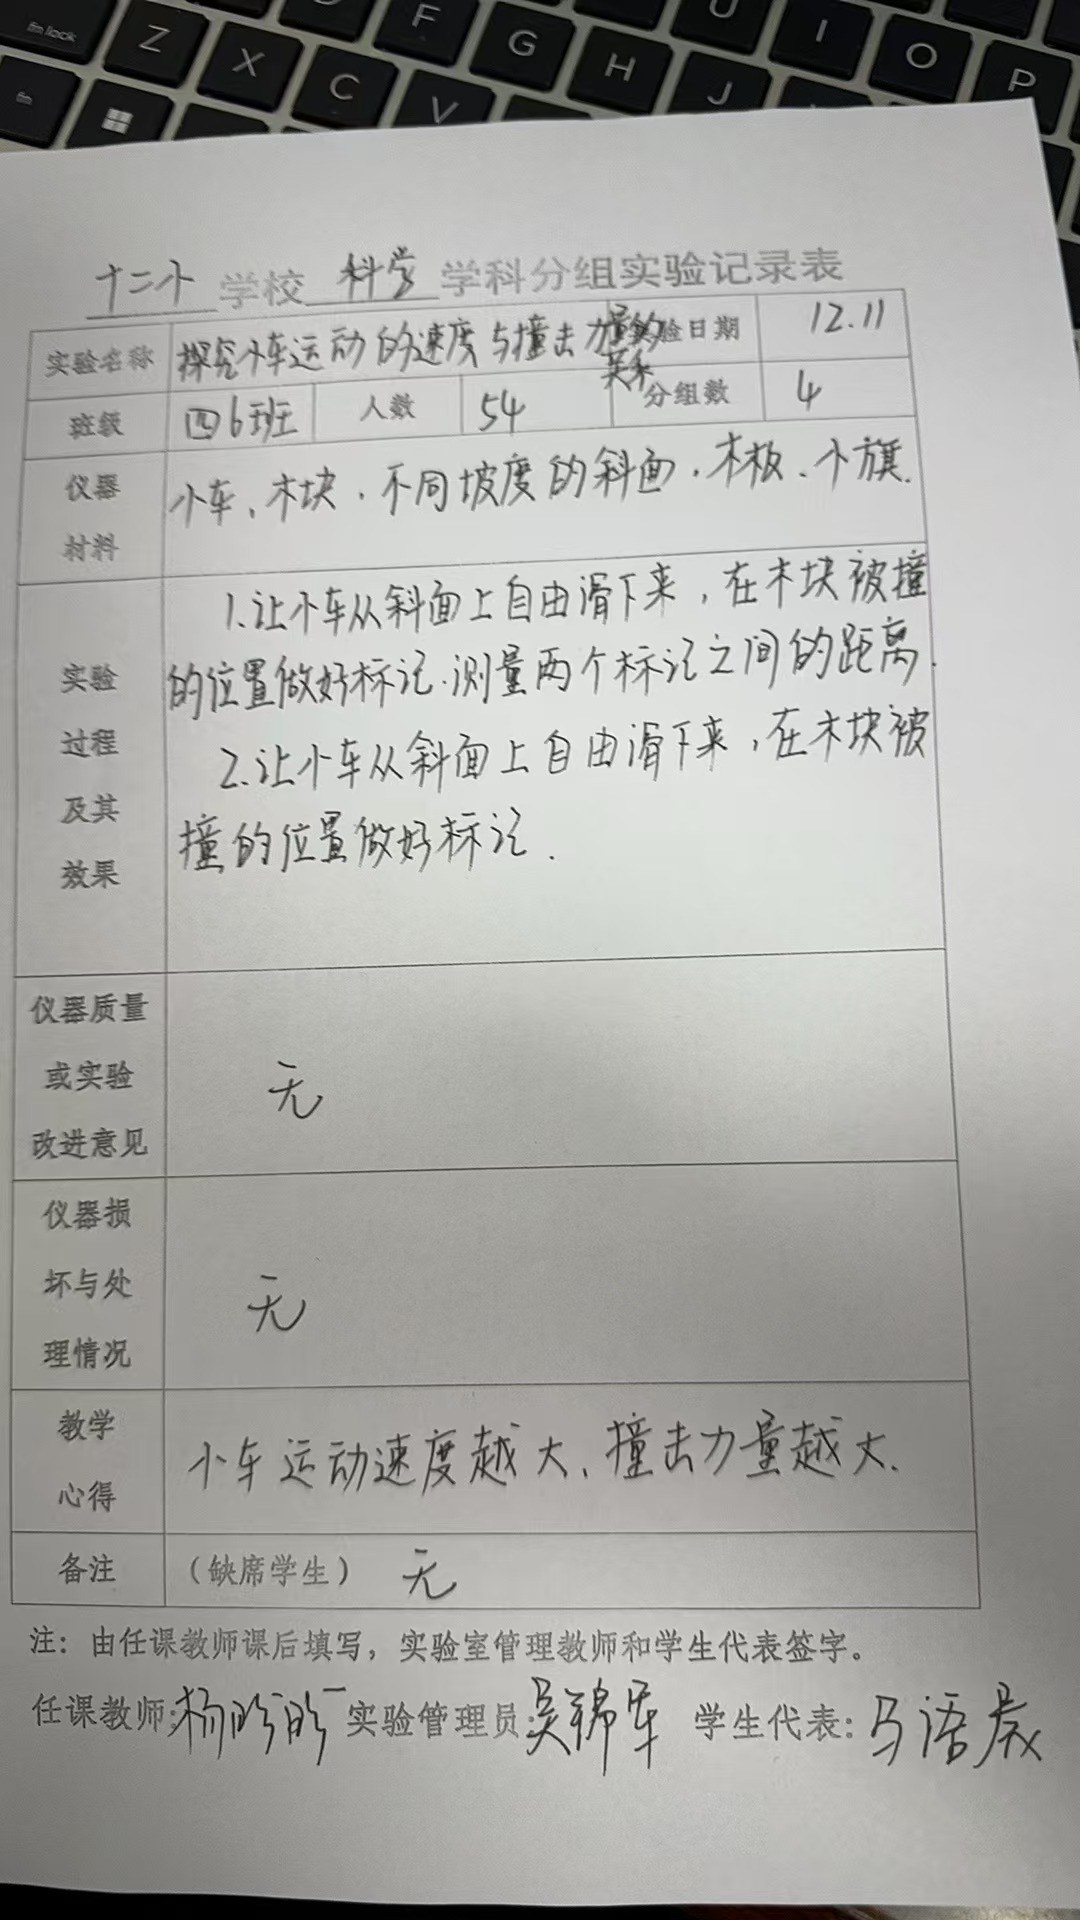 fn lock
Z
X
C
V
F
G
H
J
U
I
O
P
fn
十二小学校 科学 学科分组实验记录表
实验名称 探究小车运动的速度与撞击力量的关系 实验日期 12.11
班级 四6班 人数 54 分组数 4
仪器
材料
小车、木块、不同坡度的斜面、木板、小旗.
实验
过程
及其
效果
1.让小车从斜面上自由滑下来，在木块被撞
的位置做好标记.测量两个标记之间的距离.
2.让小车从斜面上自由滑下来，在木块被
撞的位置做好标记.
仪器质量
或实验
改进意见
无
仪器损
坏与处
理情况
无
教学
心得
小车运动速度越大、撞击力量越大.
备注 （缺席学生） 无
注：由任课教师课后填写，实验室管理教师和学生代表签字。
任课教师:杨 实验管理员:吴锦军 学生代表:马语